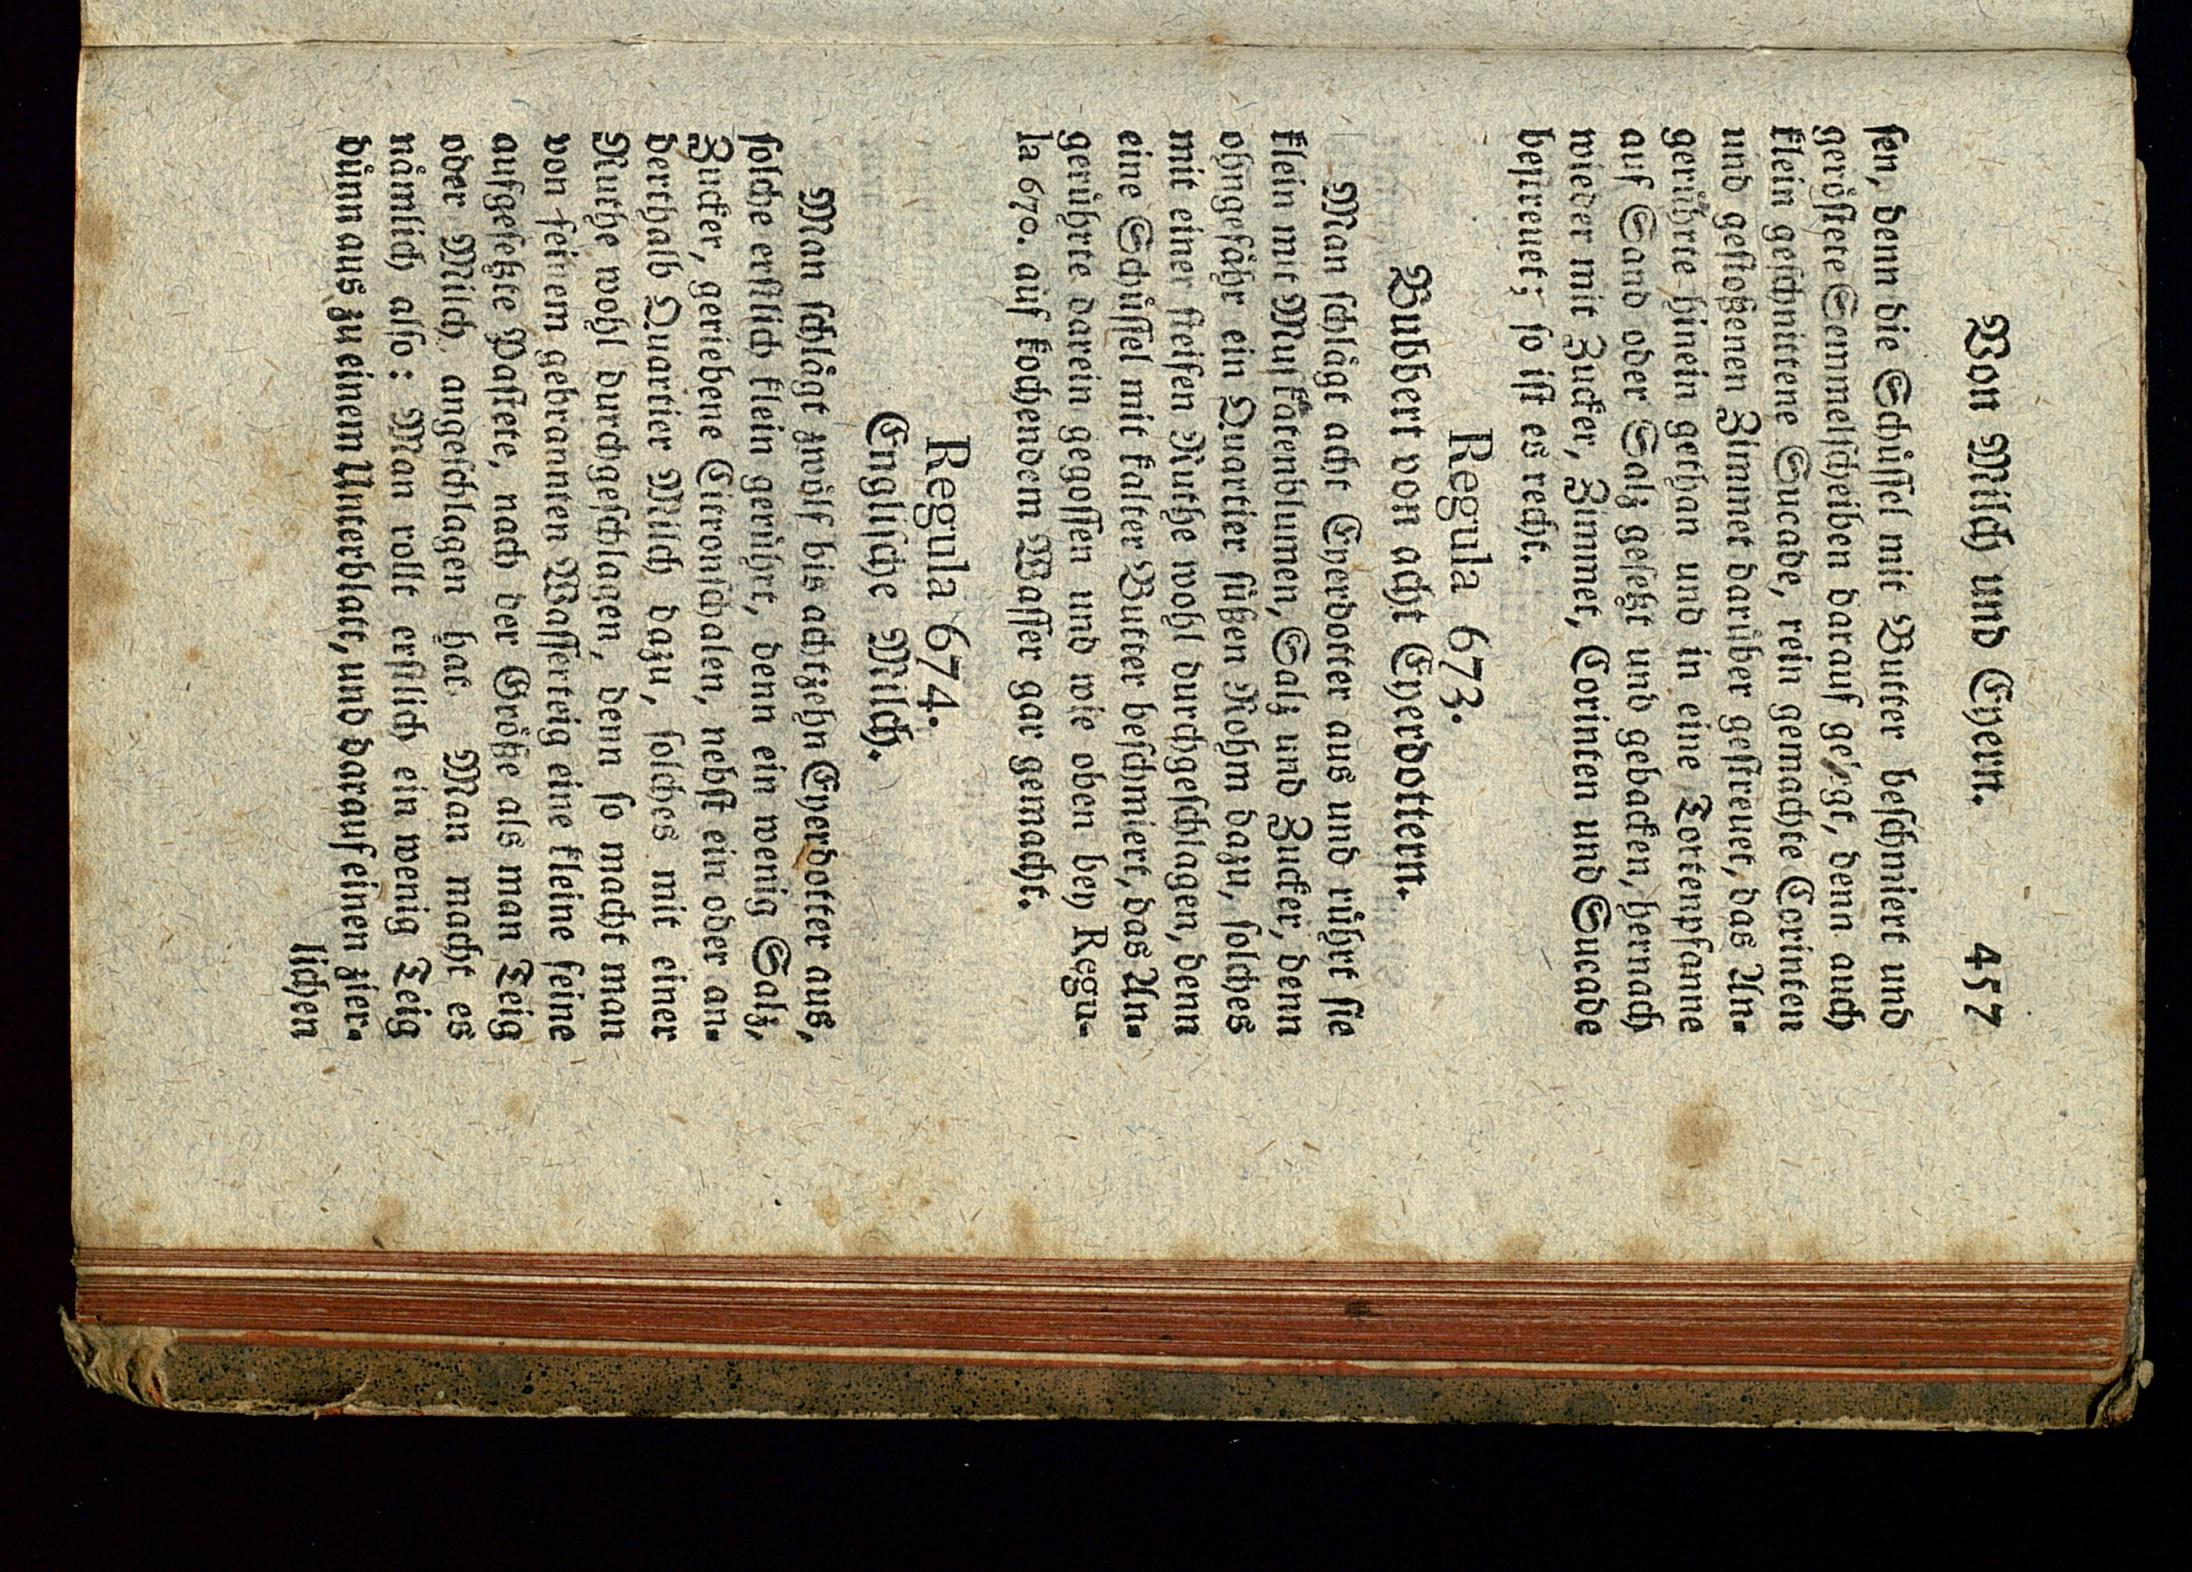 Von Milch und Eyern. 457
sen, denn die Schüssel mit Butter beschmiert und
geröstete Semmelscheiben darauf gelegt, denn auch
klein geschnittene Sucade, rein gemachte Corinten
und gestoßenen Zimmet darüber gestreuet, das An-
gerührte hinein gethan und in eine Tortenpfanne
auf Sand oder Salz gesetzt und gebacken, hernach
wieder mit Zucker, Zimmet, Corinten und Sucade
bestreuet; so ist es recht.
Regula 673.
Bubbert von acht Eyerdottern.
Man schlägt acht Eyerdotter aus und rührt sie
klein mit Muskatenblumen, Salz und Zucker, denn
ohngefähr ein Quartier süßen Rohm dazu, solches
mit einer steifen Ruthe wohl durchgeschlagen, denn
eine Schüssel mit kalter Butter beschmiert, das An-
gerührte darein gegossen und wie oben bey Regu-
la 670. auf kochendem Wasser gar gemacht.
Regula 674.
Englische Milch.
Man schlägt zwölf bis achtzehn Eyerdotter aus,
solche erstlich klein gerührt, denn ein wenig Salz,
Zucker, geriebene Citronschalen, nebst ein oder an-
derthalb Quartier Milch dazu, solches mit einer
Ruthe wohl durchgeschlagen, denn so macht man
von feinem gebrannten Wasserteig eine kleine feine
aufgesetzte Pastete, nach der Größe als man Teig
oder Milch angeschlagen hat. Man macht es
nämlich also: Man rollt erstlich ein wenig Teig
dünn aus zu einem Unterblatt, und darauf einen zier-
lichen